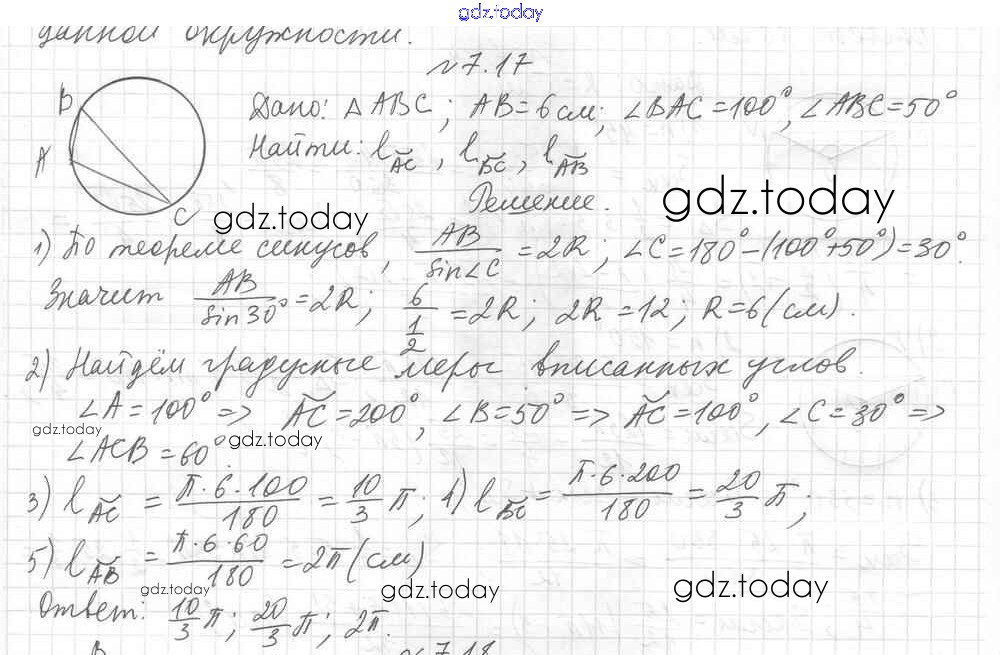 gdz.today
данной окружности.
№7.17
B
A
C
Дано: △ABC; AB=6см; ∠BAC=100°, ∠ABC=50°
Найти: l_{A͝C}, l_{B͝C}, l_{A͝B}
gdz.today
Решение.
gdz.today
1) По теореме синусов, AB/sin∠C = 2R; ∠C=180°-(100°+50°)=30°.
Значит AB/sin30° = 2R; 6/(1/2) = 2R; 2R=12; R=6(см).
2) Найдём градусные меры вписанных углов.
∠A=100° => A͝C=200°, ∠B=50° => A͝C=100°, ∠C=30° =>
gdz.today
gdz.today
∠ACB=60°.
3) l_{A͝C} = π·6·100/180 = 10/3 π; 4) l_{B͝C} = π·6·200/180 = 20/3 π;
5) l_{A͝B} = π·6·60/180 = 2π(см)
gdz.today
gdz.today
gdz.today
Ответ: 10/3 π; 20/3 π; 2π.
№7.18